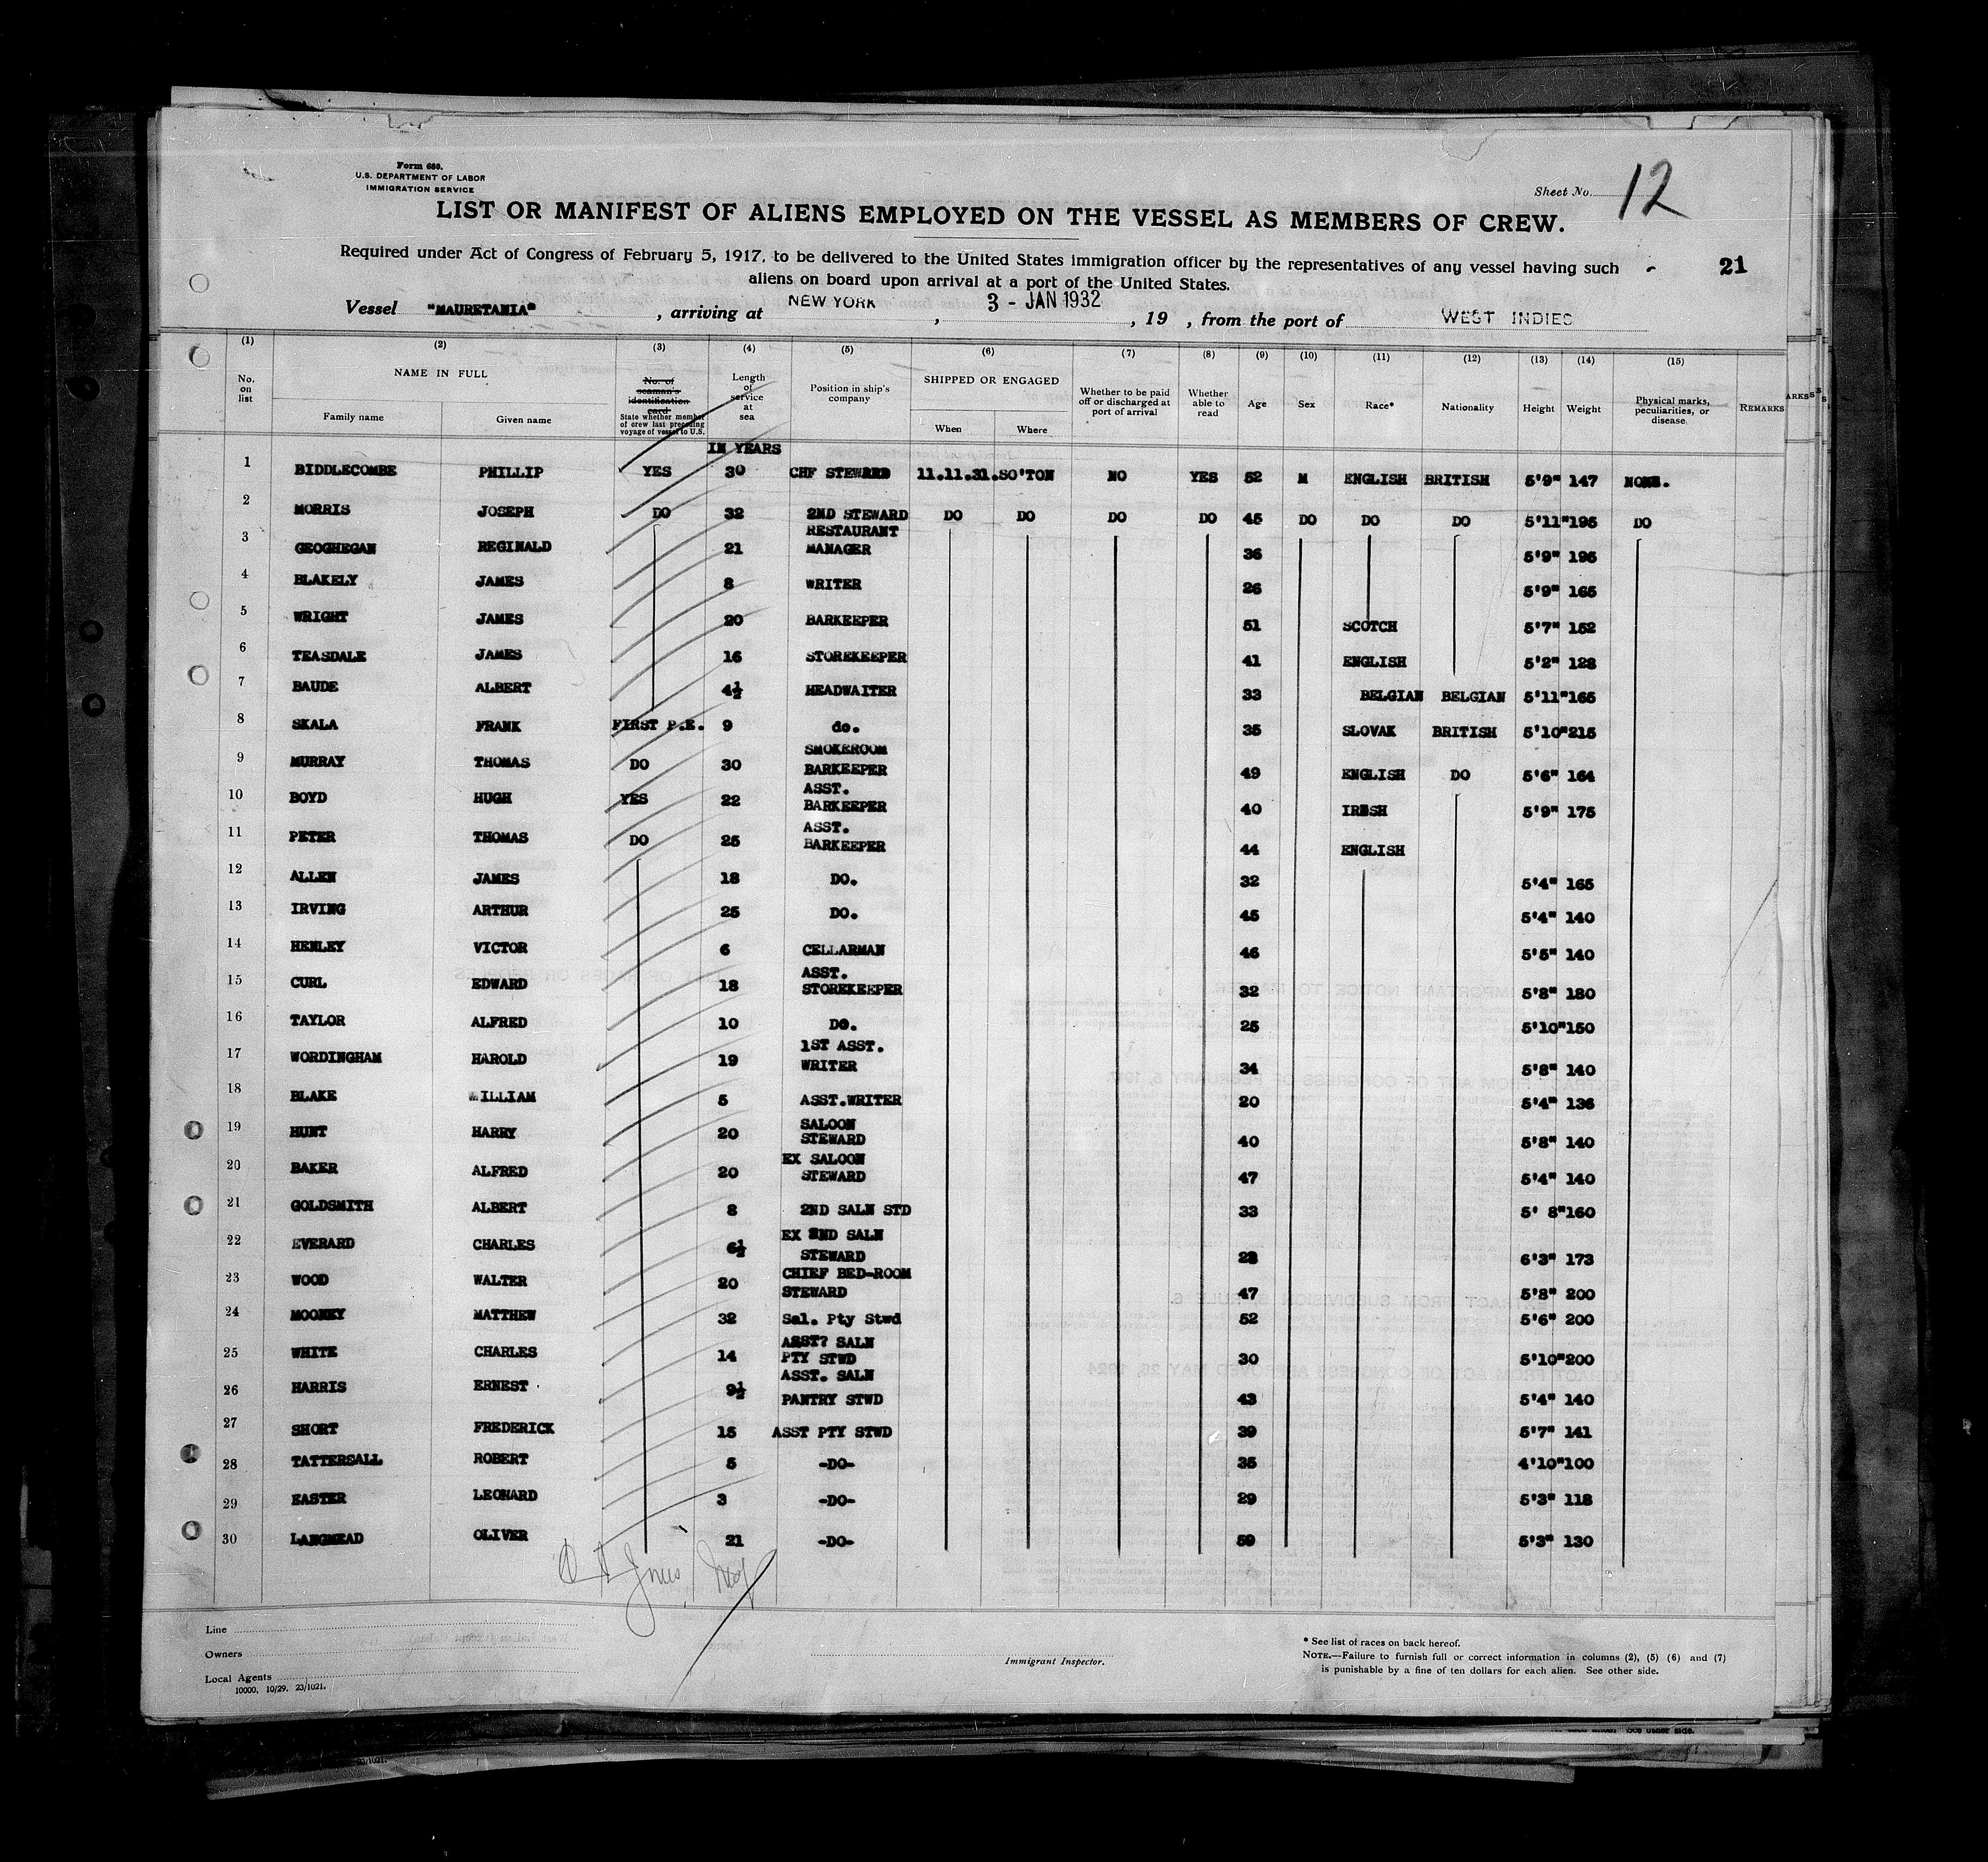 Form 680.
U.S. DEPARTMENT OF LABOR
IMMIGRATION SERVICE
Sheet No. 12
LIST OR MANIFEST OF ALIENS EMPLOYED ON THE VESSEL AS MEMBERS OF CREW.
Required under Act of Congress of February 5, 1917, to be delivered to the United States immigration officer by the representatives of any vessel having such
aliens on board upon arrival at a port of the United States.
21
Vessel "MAURETANIA", arriving at NEW YORK, 3 - JAN 1932, 19 , from the port of WEST INDIES
(1) (2) (3) (4) (5) (6) (7) (8) (9) (10) (11) (12) (13) (14) (15)
No. on list NAME IN FULL Family name Given name No. of seaman's identification card State whether member of crew last preceding voyage of vessel to U.S. Length of service at sea Position in ship's company SHIPPED OR ENGAGED When Where Whether to be paid off or discharged at port of arrival Whether able to read Age Sex Race* Nationality Height Weight Physical marks, peculiarities, or disease REMARKS
IN YEARS
1 BIDDLECOMBE PHILLIP YES 30 CHF STEWARD 11.11.31. SO'TON NO YES 52 M ENGLISH BRITISH 5'9" 147 NONE.
2 MORRIS JOSEPH DO 32 2ND STEWARD DO DO DO DO 45 DO DO DO 5'11" 195 DO
3 GEOGHEGAN REGINALD 21 RESTAURANT MANAGER 36 5'9" 195
4 BLAKELY JAMES 8 WRITER 26 5'9" 165
5 WRIGHT JAMES 20 BARKEEPER 51 SCOTCH 5'7" 152
6 TEASDALE JAMES 16 STOREKEEPER 41 ENGLISH 5'2" 128
7 BAUDE ALBERT 4½ HEADWAITER 33 BELGIAN BELGIAN 5'11" 165
8 SKALA FRANK FIRST P.E. 9 do. 35 SLOVAK BRITISH 5'10" 215
9 MURRAY THOMAS DO 30 SMOKEROOM BARKEEPER 49 ENGLISH DO 5'6" 164
10 BOYD HUGH YES 22 ASST. BARKEEPER 40 IRISH 5'9" 175
11 PETER THOMAS DO 25 ASST. BARKEEPER 44 ENGLISH
12 ALLEN JAMES 18 DO. 32 5'4" 165
13 IRVING ARTHUR 25 DO. 45 5'4" 140
14 HENLEY VICTOR 6 CELLARMAN 46 5'5" 140
15 CURL EDWARD 18 ASST. STOREKEEPER 32 5'8" 180
16 TAYLOR ALFRED 10 DO. 25 5'10" 150
17 WORDINGHAM HAROLD 19 1ST ASST. WRITER 34 5'8" 140
18 BLAKE WILLIAM 5 ASST.WRITER 20 5'4" 136
19 HUNT HARRY 20 SALOON STEWARD 40 5'8" 140
20 BAKER ALFRED 20 EX SALOON STEWARD 47 5'4" 140
21 GOLDSMITH ALBERT 8 2ND SALN STD 33 5' 8" 160
22 EVERARD CHARLES 6½ EX 2ND SALN STEWARD 28 6'3" 173
23 WOOD WALTER 20 CHIEF BED-ROOM STEWARD 47 5'8" 200
24 MOONEY MATTHEW 32 Sal. Pty Stwd 52 5'6" 200
25 WHITE CHARLES 14 ASST? SALN PTY STWD 30 5'10" 200
26 HARRIS ERNEST . 9½ ASST. SALN PANTRY STWD 43 5'4" 140
27 SHORT FREDERICK 15 ASST PTY STWD 39 5'7" 141
28 TATTERSALL ROBERT 5 -DO- 35 4'10" 100
29 EASTER LEONARD 3 -DO- 29 5'3" 118
30 LANGMEAD OLIVER 21 -DO- 59 5'3" 130
Line
Owners
Local Agents
10000, 10/29. 23/1021.
Immigrant Inspector.
* See list of races on back hereof.
NOTE.—Failure to furnish full or correct information in columns (2), (5) (6) and (7)
is punishable by a fine of ten dollars for each alien. See other side.